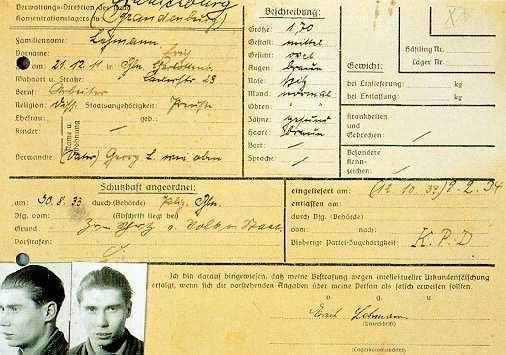 Verwaltungs-Direktion des staatl.
Konzentrationslagers in (Brandenburg)
Familienname: Lohmann
Vorname:
am 21.12.11
Wohnort u. Straße: 23
Beruf: Arbeiter
Religion: Diss. Staatsangehörigkeit: Preuße
Ehefrau: geb.:
Kinder:
Name u. Wohnung
Verwandte: (Vater) Georg L. wie oben
Beschreibung:
Größe: 1,70
Gestalt: mittel
Gesicht: oval
Augen: braun
Nase: spitz
Mund: normal
Ohren: "
Bart: /
Zähne: gesund
Haare: braun
Sprache: /
Häftling Nr.
Lager Nr.
Gewicht:
bei Einlieferung: kg
bei Entlassung: kg
Krankheiten und Gebrechen: /
Besondere Kennzeichen: /
Schutzhaft angeordnet:
am: 30.8.33 durch (Behörde)
Vfg. vom: (Abschrift liegt bei)
Grund: Volk u. Staat
Vorstrafen:
eingeliefert am: (12.10.33) 9.2.34
entlassen am:
durch Vfg. (Behörde)
vom: nach:
Bisherige Partei-Zugehörigkeit: K.P.D
Ich bin darauf hingewiesen, daß meine Bestrafung wegen intellektueller Urkundenfälschung
erfolgt, wenn sich die vorstehenden Angaben über meine Person als falsch erweisen sollten.
v. g. u.
Lohmann
(Unterschrift)
(Lagerkommandant)